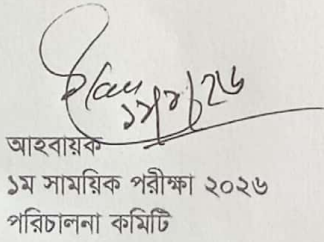 আহবায়ক
১ম সাময়িক পরীক্ষা ২০২৬
পরিচালনা কমিটি